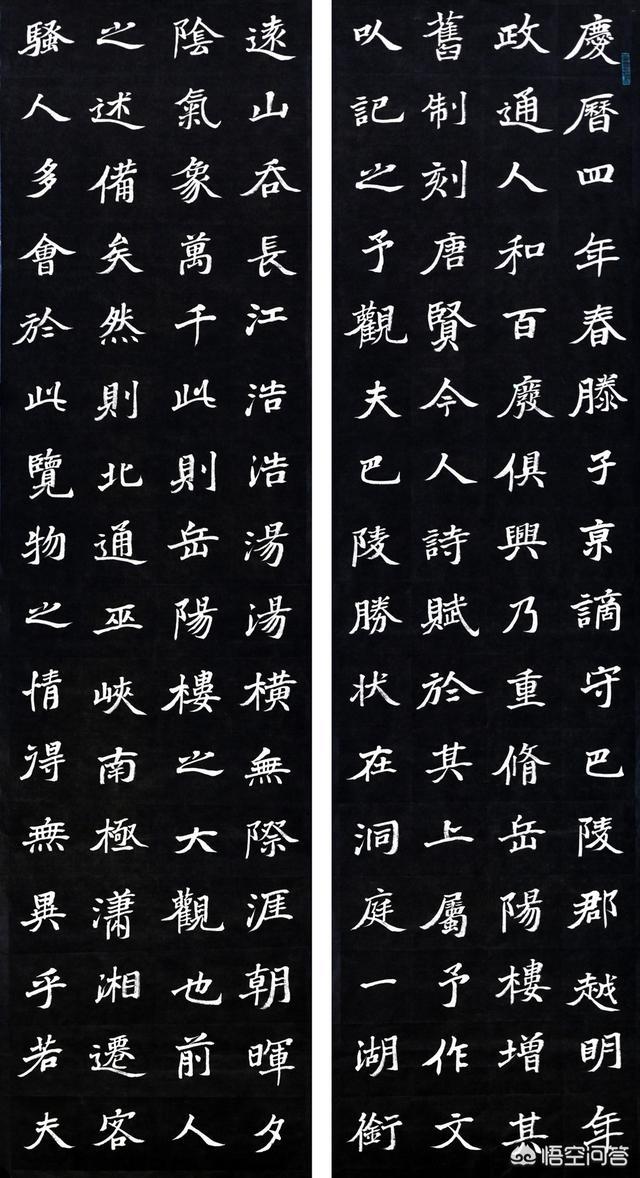 慶曆四年春滕子亰謫守巴陵郡越明年
政通人和百廢俱興乃重脩岳陽樓增其
舊制刻唐賢今人詩賦於其上屬予作文
以記之予觀夫巴陵勝状在洞庭一湖銜
遠山吞長江浩浩湯湯橫無際涯朝暉夕
陰氣象萬千此則岳陽樓之大觀也前人
之述備矣然則北通巫峽南極瀟湘遷客
騷人多會於此覽物之情得無異乎若夫
悟空问答